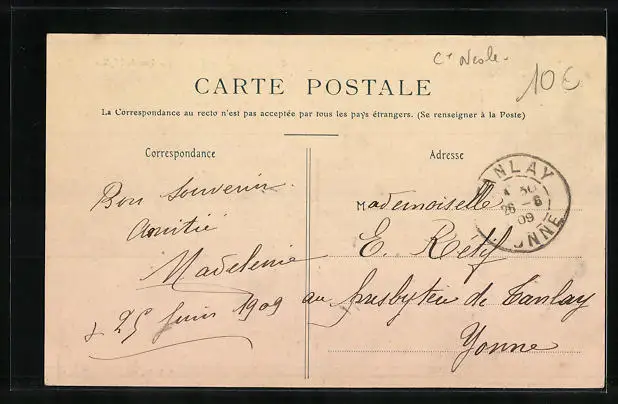 10€
CARTE POSTALE
La Correspondance au recto n'est pas acceptée par tous les pays étrangers. (Se renseigner à la Poste)
Correspondance
Bon souvenir.
Amitié
Madeleine
25 juin 1909
Adresse
TANLAY
26-6
09
YONNE
Mademoiselle
E. Rétif
au presbytère de Tanlay
Yonne